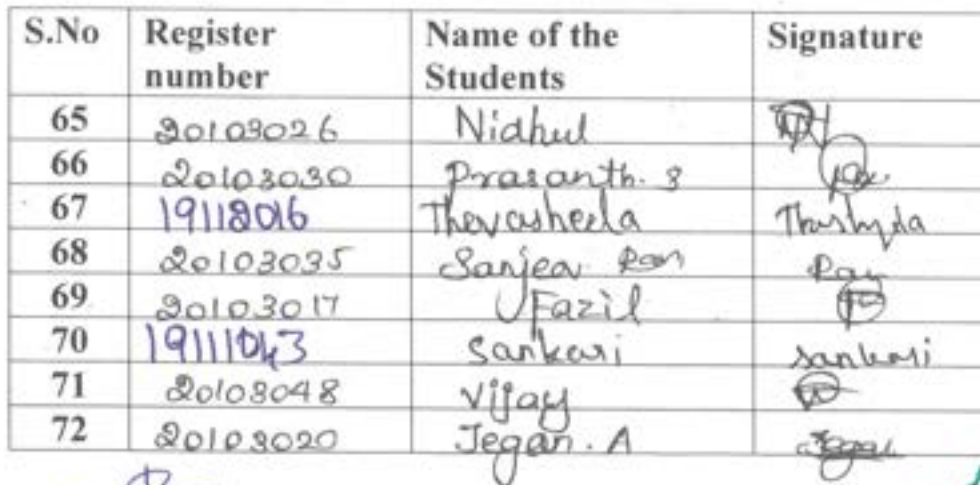 S.No Register number Name of the Students Signature
65 20103026 Nidhul
66 20103030 Prasanth. S
67 19112016 Thevasheela
68 20103035 Sanjeev Ram
69 20103017 Fazil
70 19111043 Sankari sankari
71 20103048 Vijay
72 20103020 Jegan. A Jegan